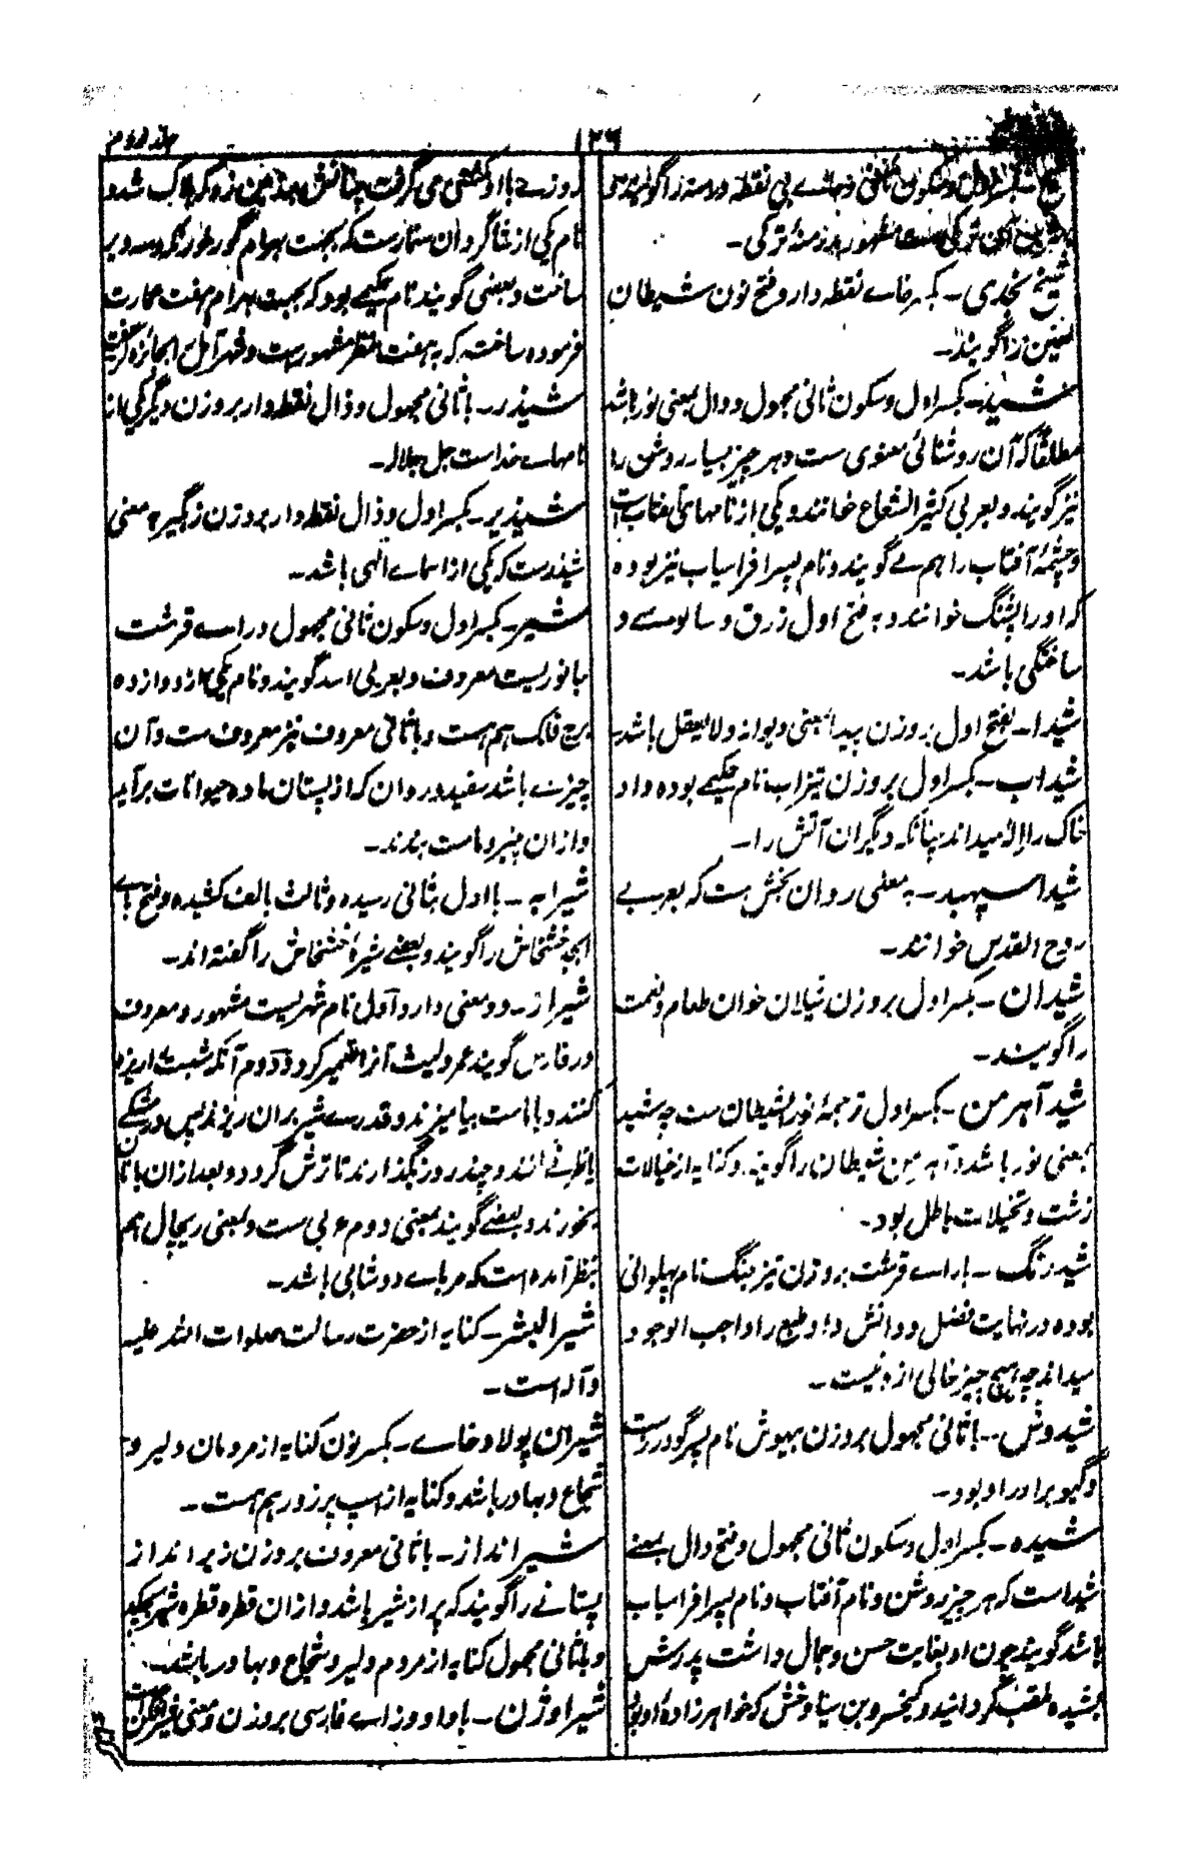 جلد دوم
۱۳۶
بکسر اول و سکون و خاے بی نقطه درمنه را گویند
ترکی درمنهٔ ترکی۔
شیخ نجدی۔ بکسر خاے نقطه دار و فتح نون شیطان
لعین را گویند۔
شید۔ بکسر اول و سکون ثانی مجهول و دال بمعنی نور باشد
مطلقاً که آن روشنائی معنوی ست و هر چیز بسیار روشن را
نیز گویند و بعربی کثیر الشعاع خوانند و یکی از نامهاے آفتاب ست
و چشمهٔ آفتاب را هم مے گویند و نام پسر افراسیاب نیز بوده
که او را پشنگ خوانند و به فتح اول زرق و سالوسے و
ساختگی باشد۔
شیدا۔ بفتح اول بروزن پیدا بمعنی دیوانه و لایعقل باشد۔
شیداب۔ بکسر اول بروزن تیزاب نام حکیمے بوده و او
خاک را اله میداند چنانکه دیگران آتش را۔
شیدا سپهبد۔ به معنی روان بخش ست که بعربے
روح القدس خوانند۔
شیدان۔ بکسر اول بروزن شیلان خوان طعام و نعمت
را گویند۔
شید آهرمن۔ بکسر اول ترجمهٔ نور الشیطان ست چه شید
بمعنی نور باشد و آهرمن شیطان را گویند و کنایه از خیالات
زشت و تخیلات باطل بود۔
شیدرنگ۔ با راے قرشت بروزن تیز چنگ نام پهلوانی
بوده در نهایت فضل و دانش و او طبع را واجب الوجود
میداند چه هیچ چیز خالی ازو نیست۔
شیدوش۔ با ثانی مجهول بروزن بیهوش نام پسر گودرز ست
و گیو برادر او بود۔
شیده۔ بکسر اول و سکون ثانی مجهول و فتح دال بمعنے
شید است که هر چیز روشن و نام آفتاب و نام پسر افراسیاب
باشد گویند چون او بغایت حسن و جمال داشت پدرش
بشیده ملقب گردانید و کیخسرو بن سیاوخش که خواهرزادهٔ او بود
روزے با او کشتی می گرفت چنانش بر زمین زد که هلاک شد و
نام یکی از شاگردان سنمارست که بجهت بهرام گور خورنگه و سه دیر
ساخت و بعضی گویند نام حکیمے بود که بجهت بهرام هفت عمارت
فرموده ساخته که به هفت منظر مشهورست و شهر آمل را بجائزه گرفت
شیذر۔ با ثانی مجهول و ذال نقطه دار بروزن دیگر یکی از
نامهاے خداست جل جلاله۔
شیذیر۔ بکسر اول و ذال نقطه دار بروزن زنگیر به معنی
شیذرست که یکی از اسماے الهی باشد۔
شیر۔ بکسر اول و سکون ثانی مجهول و راے قرشت
جانوریست معروف و بعربی اسد گویند و نام یکی از دوازده
برج فلک هم هست و با ثانی معروف نیز معروف ست و آن
چیزے باشد سفید و روان که از پستان ماده حیوانات برآید
و از ان پنیر و ماست بندند۔
شیرابه۔ با اول بثانی رسیده و ثالث بالف کشیده و فتح باے
ابجد خشخاش را گویند و بعضے شیرهٔ خشخاش را گفته اند۔
شیراز۔ دو معنی دارد اول نام شهریست مشهور و معروف
در فارس گویند عمرولیث آنرا تعمیر کرد و دوم آنکه شبت را ریزه
کنند و با ماست بیامیزند و قدرے شیر بران ریزند پس در مشکے
یا ظرفے کنند و چند روز بگذارند تا ترش گردد و بعد از ان با نان
بخورند و بعضے گویند بمعنی دوم عربی ست و بمعنی ریچال هم
بنظر آمده است که مرباے دوشابی باشد۔
شیر البشر۔ کنایه از حضرت رسالت صلوات الله علیه
و آله است۔
شیران پولاد خاے۔ بکسر نون کنایه از مردمان دلیر و
شجاع و بهادر باشد و کنایه از اسپ پر زور هم هست۔
شیر انداز۔ با ثانی معروف بروزن زیر انداز
پستانے را گویند که پر از شیر باشد و از ان قطره قطره شیر بچکد
و با ثانی مجهول کنایه از مردم دلیر و شجاع و بهادر باشد۔
شیر اوژن۔ با واو و زاے فارسی بروزن و معنی شیر افگن ست